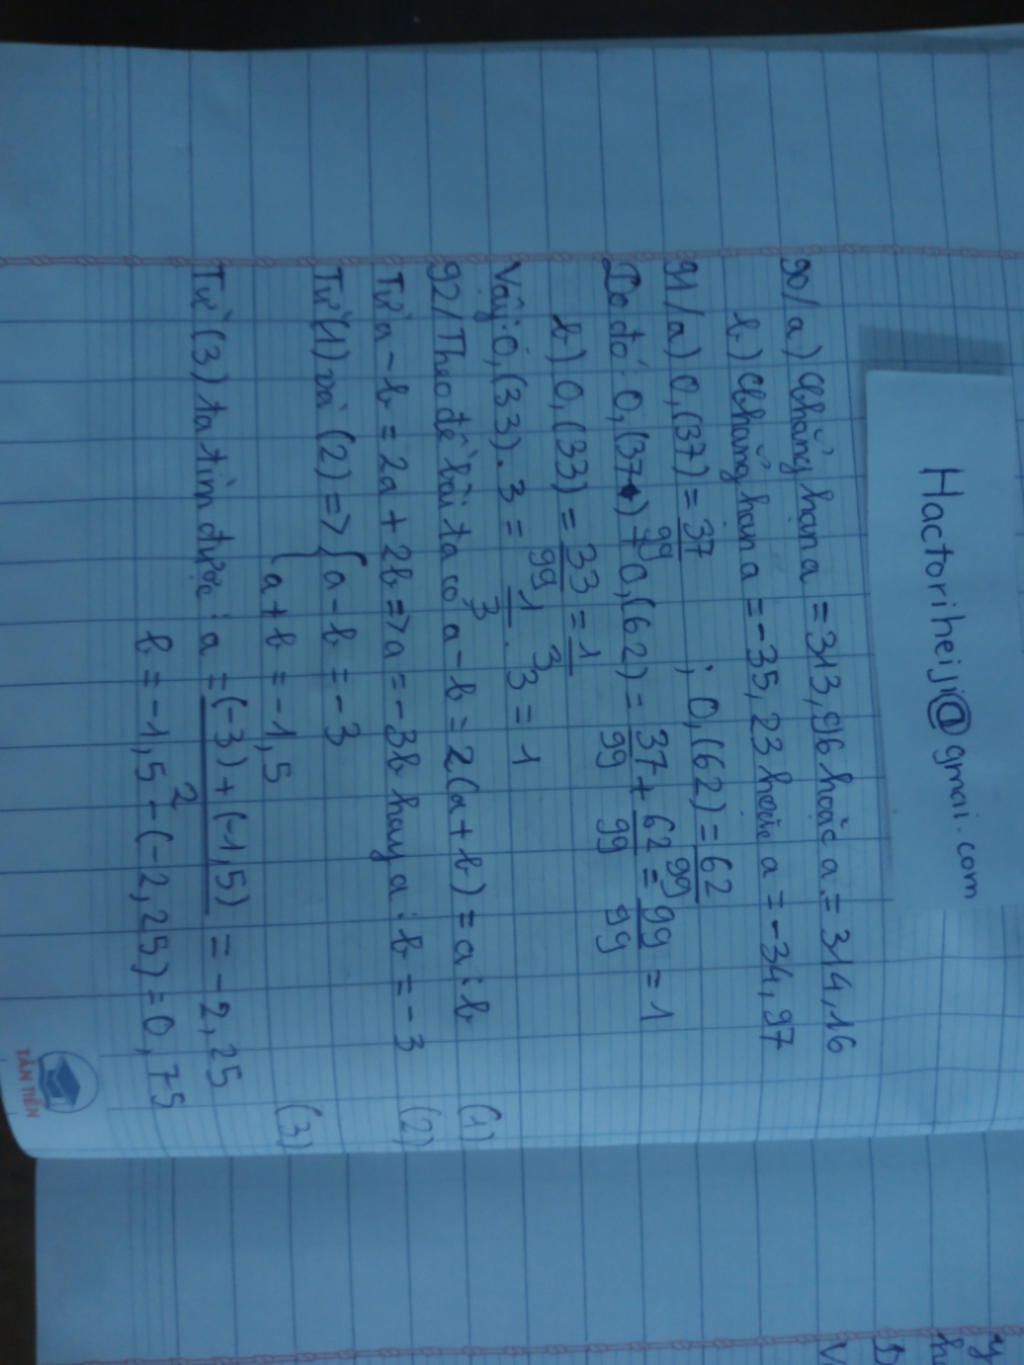 Hactoriheiji@gmai.com
90/a) Chẳng hạn a = 313,96 hoặc a = 314,16
b) Chẳng hạn a = -35,23 hoặc a = -34,97
91/a) 0,(37) = 37/99 ; 0,(62) = 62/99
Do đó: 0,(37) + 0,(62) = 37/99 + 62/99 = 99/99 = 1
b) 0,(33) = 33/99 = 1/3
Vậy: 0,(33).3 = 1/3 . 3 = 1
92/ Theo đề bài ta có a - b = 2(a + b) = a : b (1)
Từ a - b = 2a + 2b => a = -3b hay a : b = -3 (2)
Từ (1) và (2) => { a - b = -3
{ a + b = -1,5 (3)
Từ (3) ta tìm được: a = (-3) + (-1,5) / 2 = -2,25
b = -1,5 - (-2,25) = 0,75
TÂN TIẾN